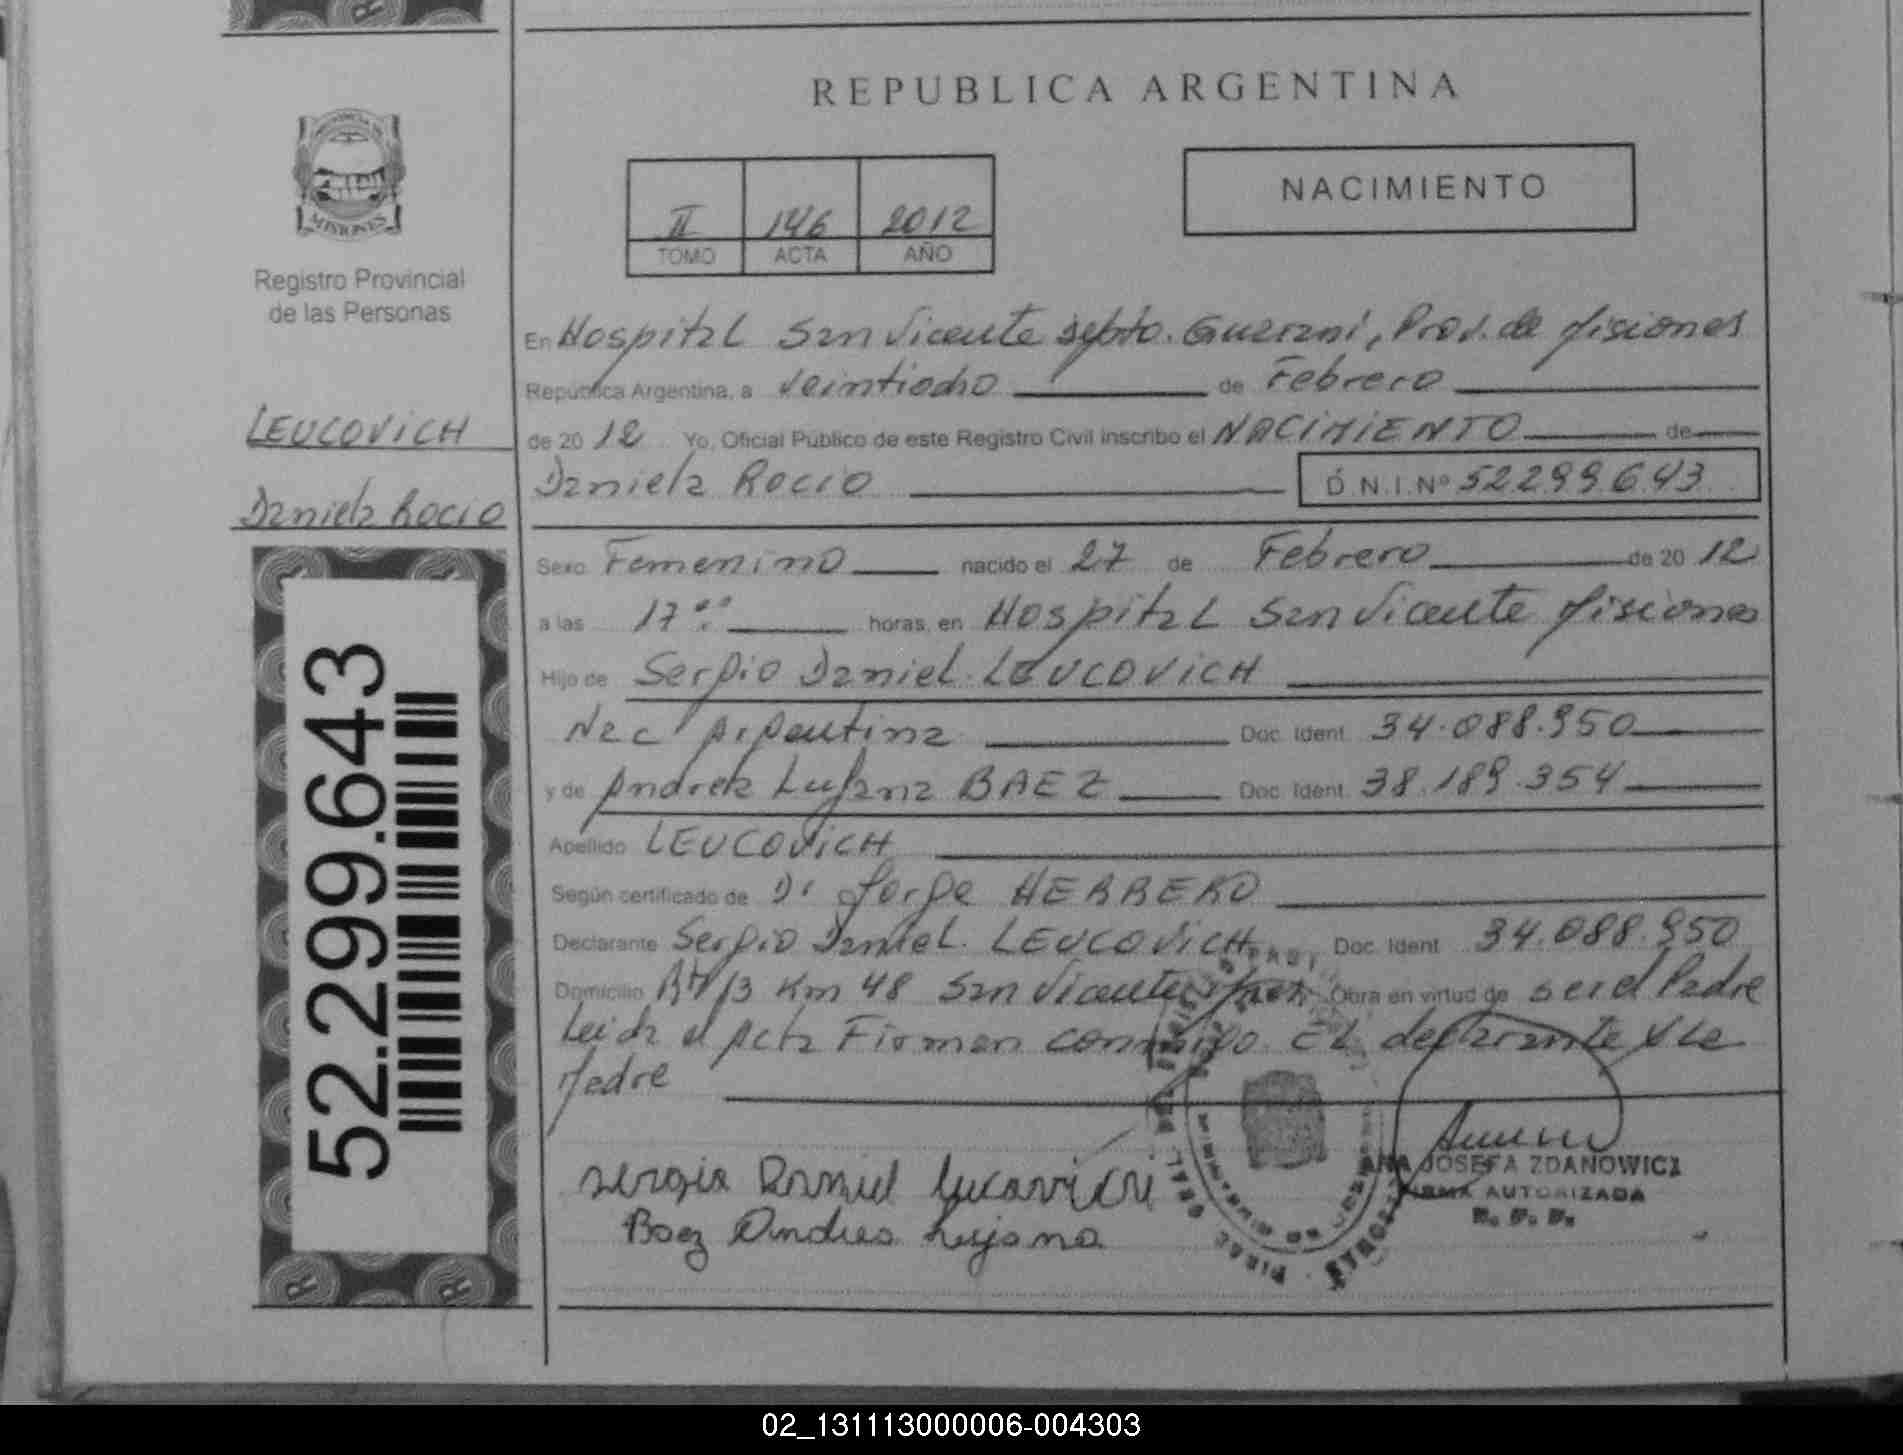 REPUBLICA ARGENTINA
NACIMIENTO
II 146 2012
TOMO ACTA AÑO
MISIONES
Registro Provincial
de las Personas
LEUCOVICH
Daniela Rocio
52.299.643
En Hospital San Vicente depto. Guarani, Prov. de Misiones
República Argentina, a Veintiocho de Febrero
de 20 12 Yo, Oficial Público de este Registro Civil inscribo el NACIMIENTO de
Daniela Rocio D.N.I.Nº 52299643
Sexo Femenino nacido el 27 de Febrero de 20 12
a las 17:00 horas, en Hospital San Vicente Misiones
Hijo de Sergio Daniel LEUCOVICH
Nac Argentina Doc. Ident. 34.088.950
y de Andrea Lujana BAEZ Doc. Ident. 38.189.354
Apellido LEUCOVICH
Según certificado de Dr Jorge HERRERO
Declarante Sergio Daniel LEUCOVICH Doc. Ident. 34.088.950
Domicilio Km 48 San Vicente Obra en virtud de ser el Padre
Leida el Acta Firman conmigo EL declarante y la
Madre
Sergio Daniel Leucovich
Baez Andrea Lujana
ANA JOSEFA ZDANOWICZ
FIRMA AUTORIZADA
R. P. P.
02_131113000006-004303